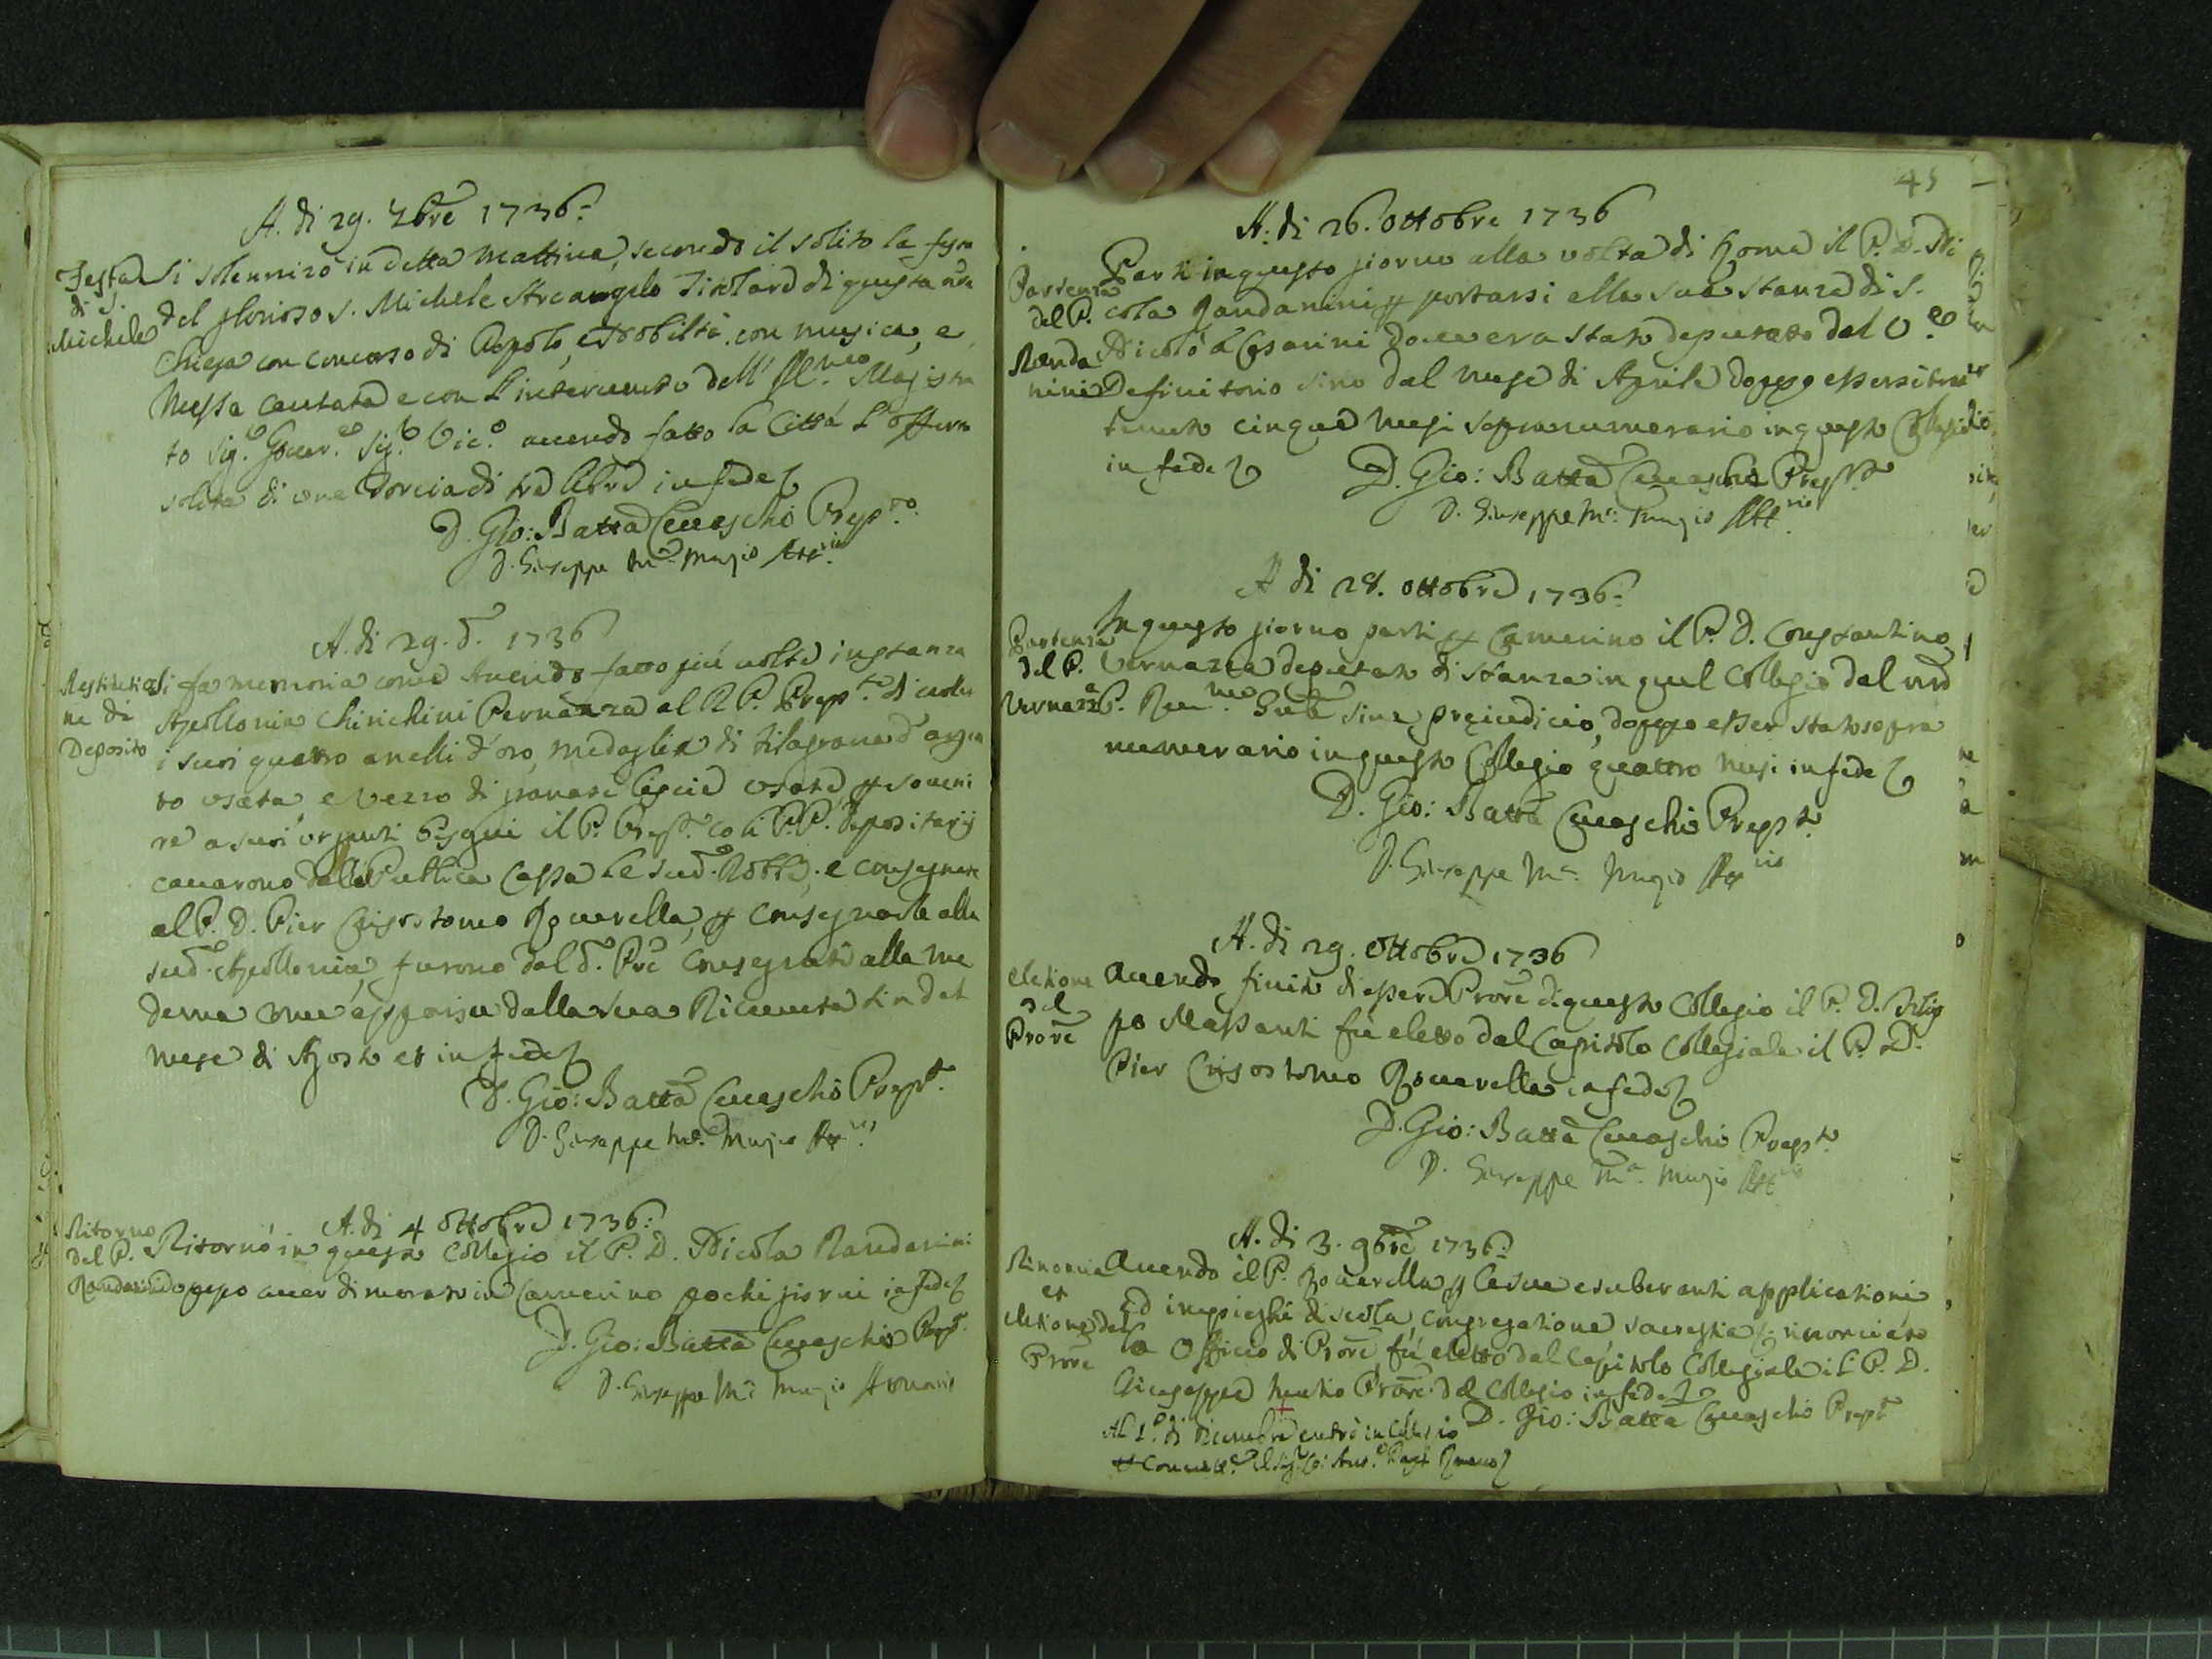 A. di 29. 7bre 1736.
Festa di S. Michele
Si solennizò in detta mattina, secondo il solito la festa
del glorioso S. Michele Arcangelo Titolare di questa nra
Chiesa con concorso di Popolo, e Nobiltà con musica, e
Messa cantata e con l'interuento dell' Ill.mo Magistra
to Sig.e Gouer.e Sig.e Vic.o auendo fatto la Città l'offerta
solita di una Torcia di tre libre in fede
D. Gio: Batta Ceuaschi Prep.to
D. Giuseppe M.a Muzio Att.rio
A. di 29. d. 1736
Restitutio
ne di
Deposito
Si fa memoria come Auendo fatto più uolte instanza
Apollonia Chirichini Pernazza al R P. Prep.to di uoler
i suoi quattro anelli d'oro, medaglia di filagrana d'argen
to usata e vezzo di granate liscie usate, p soueni
re a suoi urgenti bisogni il P. Prep.to co li P.P. Depositarij
cauarono dalla Publica Cassa le sud. Robbe, e consegnate
al P. D. Pier Crisostomo Rouerella, p consegnarle alla
sud. Apollonia, furono dal d. Pre consegnate alla me
dema come apparisce dalla sua Riceuuta sin dal
mese di Agosto et in fede
D. Gio: Batta Ceuaschi Prep.to
D. Giuseppe M.a Muzio Att.rio
A. di 4 Ottobre 1736.
Ritorno
del P.
Randanini
Ritornò in questo Collegio il P. D. Nicola Randanini
doppo auer dimorato in Camerino pochi giorni in fede
D. Gio: Batta Ceuaschi Prep.to
D. Giuseppe M.a Muzio Attuario
45
A. di 26. Ottobre 1736
Partenza
del P.
Randa
nini
Partì in questo giorno alla volta di Roma il P. D. Ni
cola Randanini p portarsi alla sua stanza di S.
Nicolò a Cesarini doue era stato deputato dal V.e
Definitorio sino dal mese di Aprile doppo essersi trat
tenuto cinque mesi sopranumerario in questo Collegio
in fede
D. Gio: Batta Ceuaschi Prep.to
D. Giuseppe M.a Muzio Att.rio
A di 28. Ottobre 1736.
Partenza
del P.
Vernazza
In questo giorno partì p Camerino il P. D. Constantino
Vernazza deputato di stanza in quel Collegio dal nro
P. Reu.mo Gnle sine preiudicio, doppo esser stato sopra
numerario in questo Collegio quattro mesi in fede
D. Gio: Batta Ceuaschi Prep.to
D. Giuseppe M.a Muzio Att.rio
A. di 29. Ottobre 1736
eletione
del
Prore
Auendo finito di essere Prore di questo Collegio il P. D. Filip
po Massanti fù eletto dal Capitolo Collegiale il P. D.
Pier Crisostomo Rouerella in fede
D. Gio: Batta Ceuaschi Prep.to
D. Giuseppe M.a Muzio Att.rio
A. di 3. 9bre 1736.
Rinonzia
et
eletione del
Prore
Auendo il P. Rouerella p le sue esuberanti applicationi
ed impieghi di scola, congregatione sacrestia rinonciato
lo Officio di Prore fù eletto dal Capitolo Collegiale il P. D.
Giuseppe Mutio Prore del Collegio in fede
D. Gio: Batta Ceuaschi Prep.to
Al 1.o di Dicembre entrò in Collegio